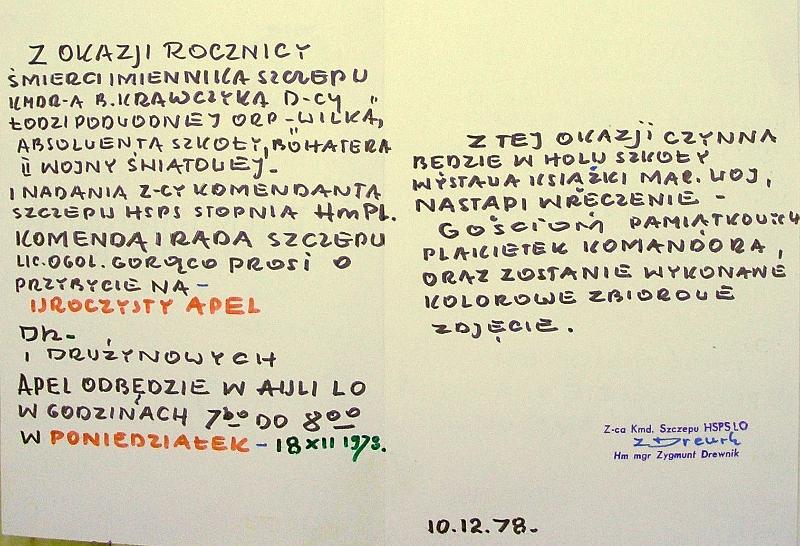 Z OKAZJI ROCZNICY
ŚMIERCI IMIENNIKA SZCZEPU
KMDR-A B. KRAWCZYKA D-CY
ŁODZI PODWODNEJ ORP-"WILKA",
ABSOLWENTA SZKOŁY, BOHATERA
II WOJNY ŚWIATOWEJ.
I NADANIA Z-CY KOMENDANTA
SZCZEPU HSPS STOPNIA HmPL.
KOMENDA I RADA SZCZEPU
LIC. OGOL. GORĄCO PROSI O
PRZYBYCIE NA-
UROCZYSTY APEL
DH-
I DRUŻYNOWYCH
APEL ODBĘDZIE W AULI LO
W GODZINACH 7⁰⁰ DO 8⁰⁰
W PONIEDZIAŁEK - 18 XII 1978.
Z TEJ OKAZJI CZYNNA
BĘDZIE W HOLU SZKOŁY
WYSTAWA KSIĄŻKI MAR. WOJ,
NASTĄPI WRĘCZENIE -
GOŚCIOM PAMIĄTKOWYCH
PLAKIETEK KOMANDORA,
ORAZ ZOSTANIE WYKONANE
KOLOROWE ZBIOROWE
ZDJĘCIE.
Z-ca Kmd. Szczepu HSPS LO
Hm mgr Zygmunt Drewnik
10.12.78.-